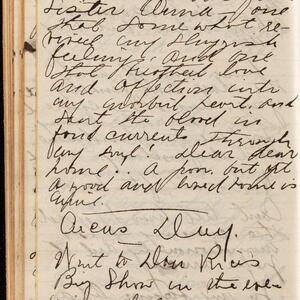 Sister Anna, one
that somewhat re-
vived my sluggish
feelings. And one
that breathed love
and affection into
my morbid heart. and
sent the blood in
fond currents through
my soul! Dear dear
home.. A poor but yet
a good and loved home is
mine.
Circus Day.
Went to Dan Rices
Big Show in the eve-